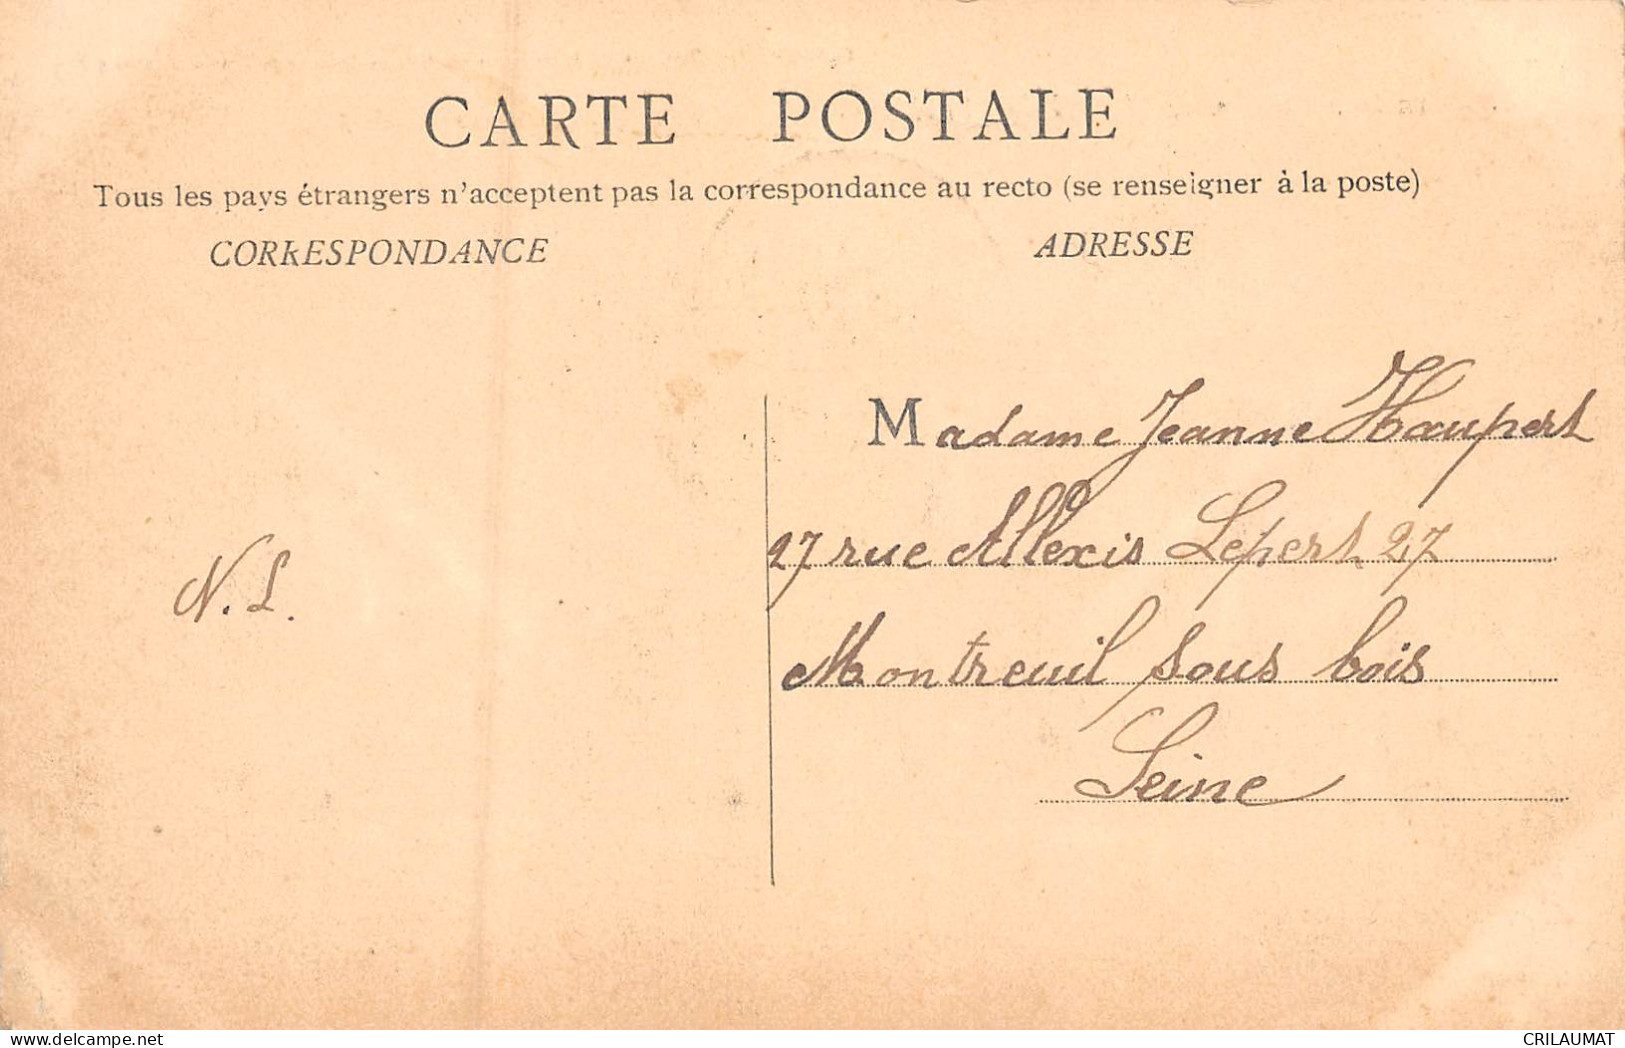 CARTE POSTALE
Tous les pays étrangers n'acceptent pas la correspondance au recto (se renseigner à la poste)
CORRESPONDANCE
ADRESSE
Madame Jeanne Haupert
27 rue Allexis Lepert 27
Montreuil sous bois
Seine
N. L.
www.delcampe.net
CRILAUMAT